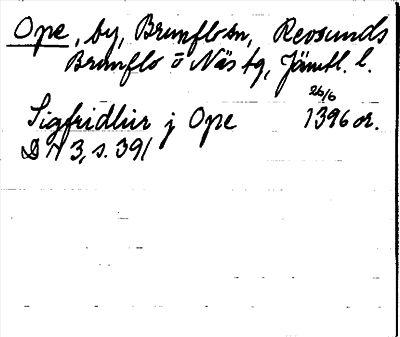 Ope, by, Brunflo sn, Revsunds
Brunflo o Näs tg, Jämtl. l.
26/6
Sigfridhir j Ope 1396 or.
DN 3, s. 391